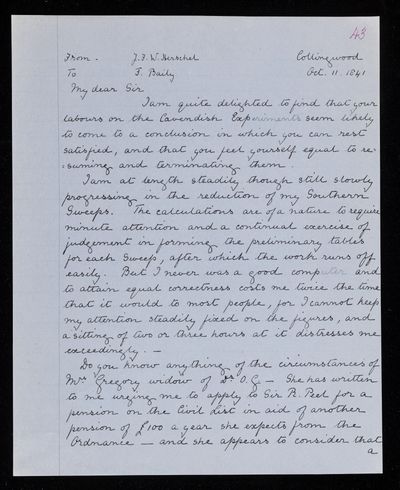 43
From - J.F.W. Herschel Collingwood
To F. Baily Oct. 11. 1841
My dear Sir
I am quite delighted to find that your
labours on the Cavendish Experiments seem likely
to come to a conclusion in which you can rest
satisfied, and that you feel yourself equal to re-
-suming and terminating them.
I am at length steadily though still slowly
progressing in the reduction of my Southern
Sweeps. The calculations are of a nature to require
minute attention and a continual exercise of
judgement in forming the preliminary tables
for each Sweep, after which the work runs off
easily. But I never was a good computer and
to attain equal correctness costs me twice the time
that it would to most people, for I cannot keep
my attention steadily fixed on the figures, and
a sitting of two or three hours at it distresses me
exceedingly. -
Do you know anything of the circumstances of
Mrs Gregory widow of Dr O.G. - She has written
to me urging me to apply to Sir R. Peel for a
pension on the Civil List in aid of another
pension of £100 a year she expects from the
Ordnance - and she appears to consider that
a